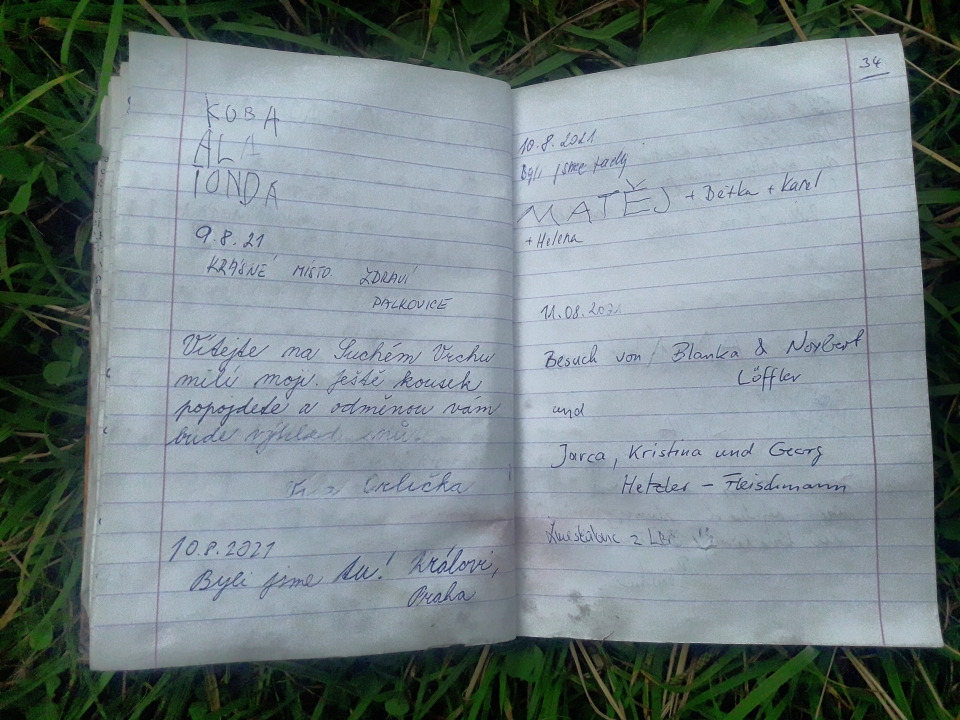 KUBA
ALA
TONDA
9.8.21
KRÁSNÉ MÍSTO. ZDRAVÍ
PALKOVICE
Vítejte na Suchém Vrchu
milí moji. Ještě kousek
popojdete a odměnou vám
bude výhled
Orlička
10.8.2021
Byli jsme tu! Královi,
Praha
34
10.8.2021
Byli jsme tady
MATĚJ + Bětka + Karel
+ Helena
11.08.2021
Besuch von Blanka & Norbert
Löffler
und
Jarca, Kristina und Georg
Hetzler - Fleischmann